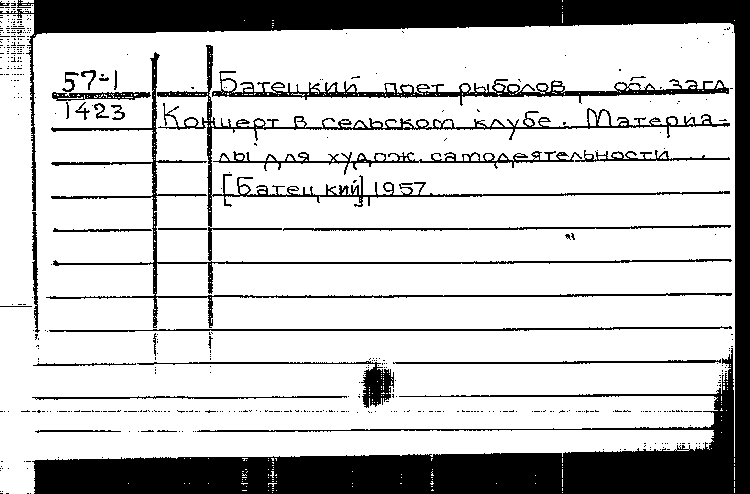 57-1
Батецкий поет рыболов, обл. загл
1423
Концерт в сельском клубе. Материа-
лы для худож. самодеятельности.
[Батецкий], 1957.